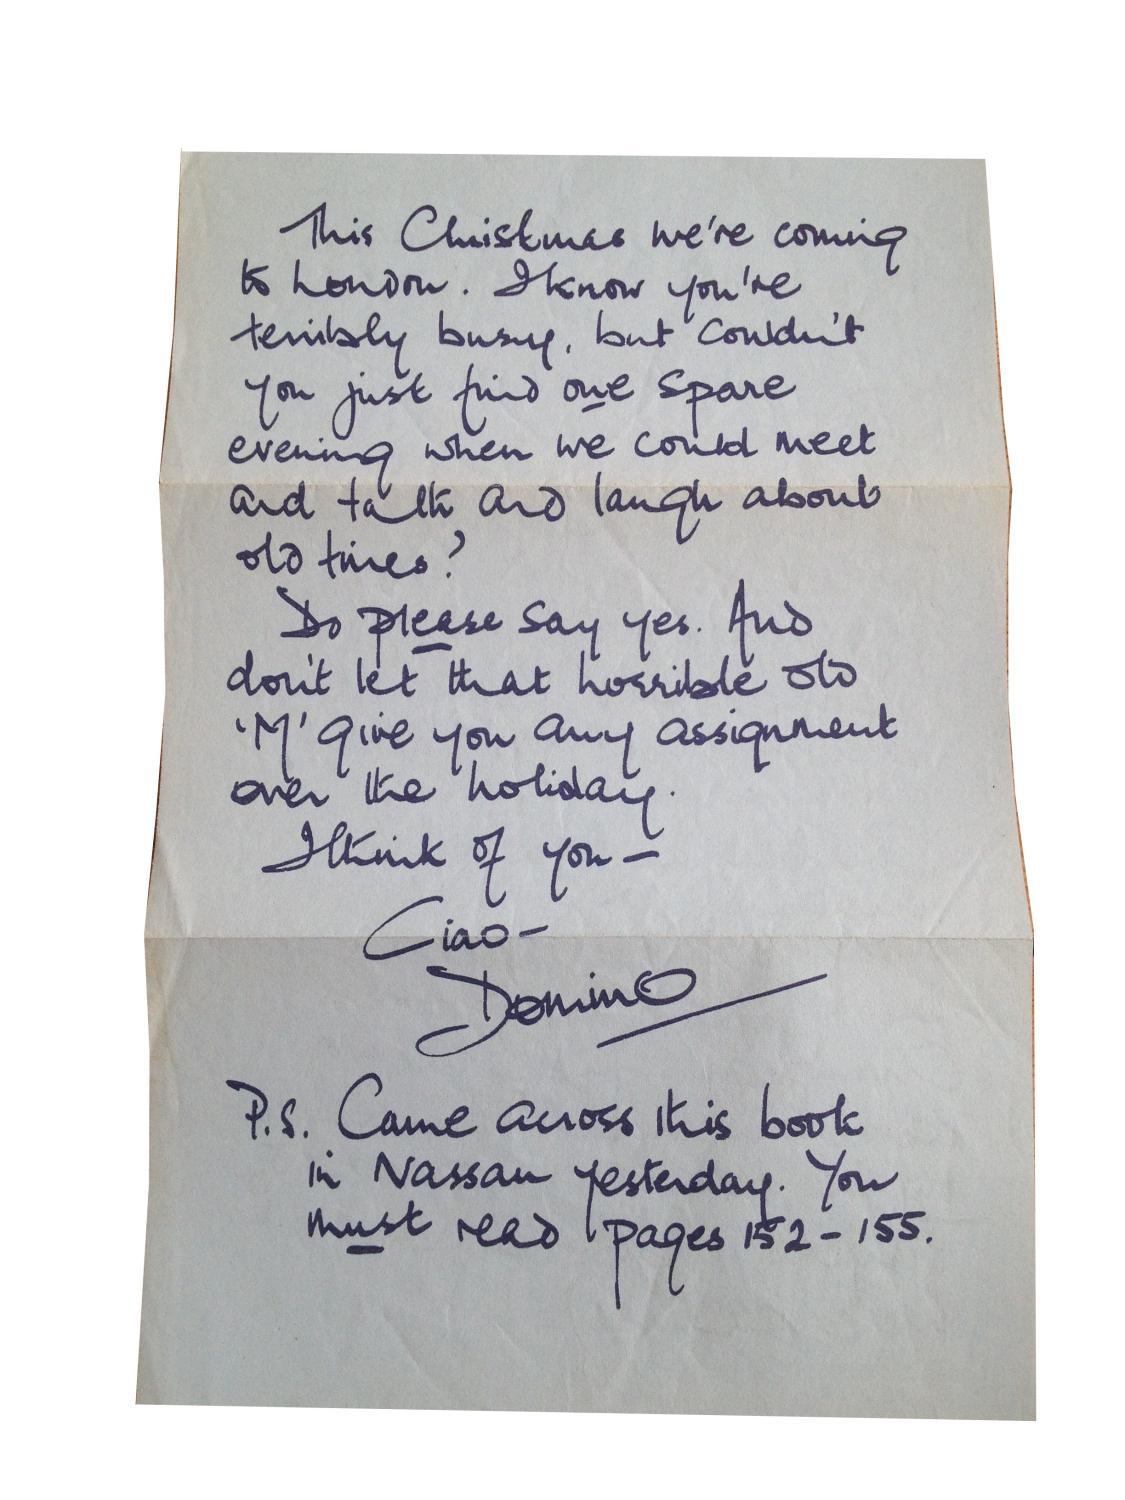 This Christmas we're coming
to London. I know you're
terribly busy, but couldn't
you just find one spare
evening when we could meet
and talk and laugh about
old times?
Do please say yes. And
don't let that horrible old
'M' give you any assignment
over the holiday.
I think of you —
Ciao —
Domino
P.S. Came across this book
in Nassau yesterday. You
must read pages 152 - 155.